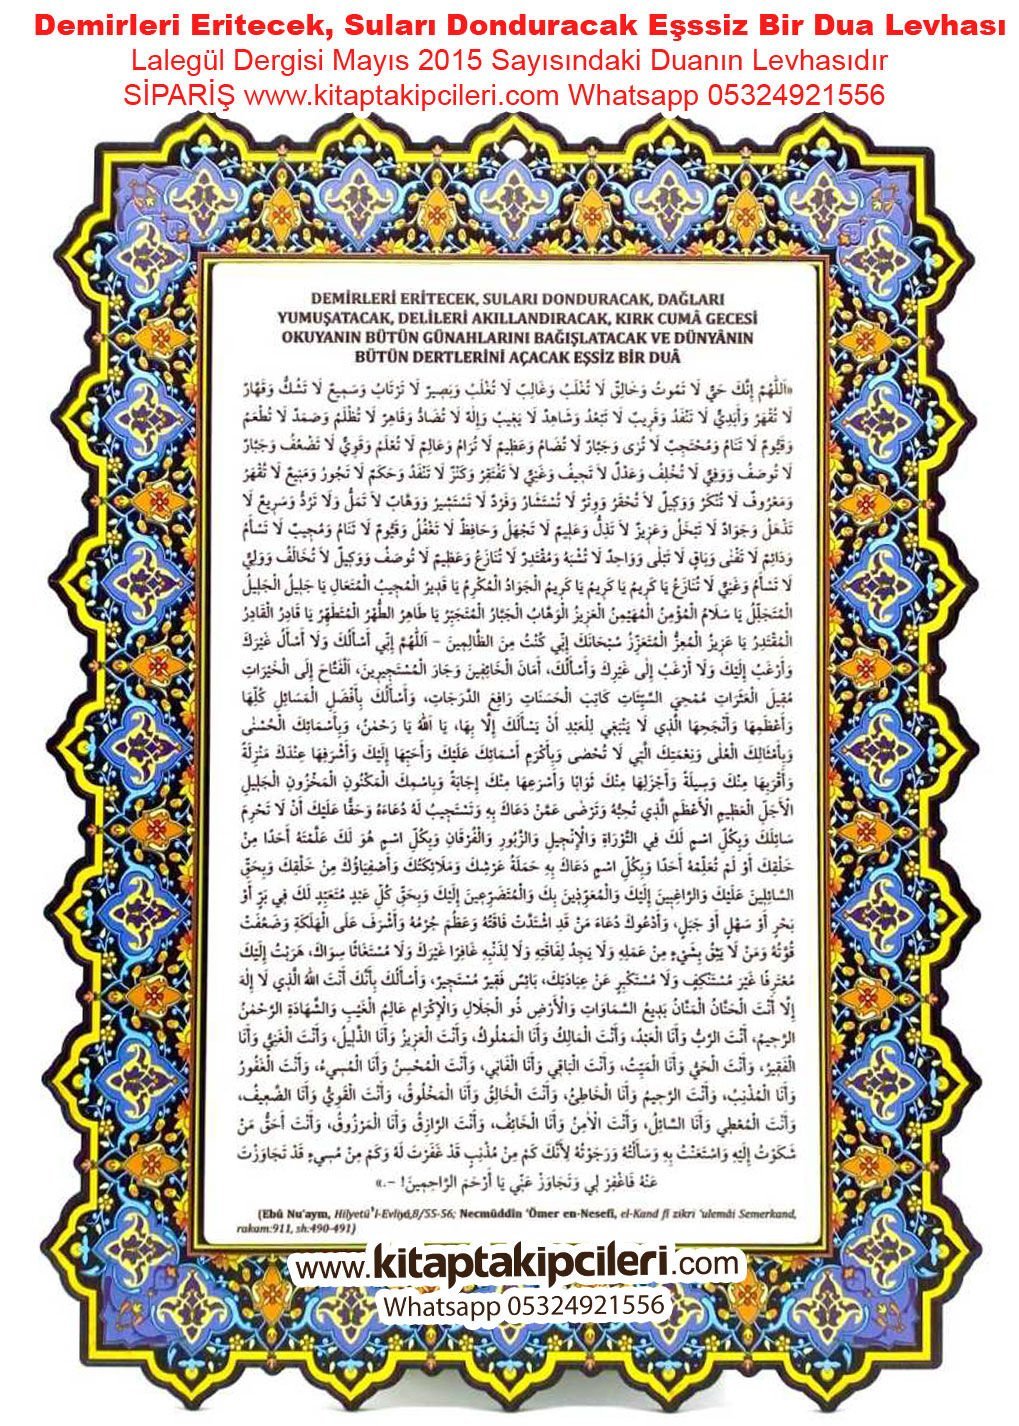 Demirleri Eritecek, Suları Donduracak Eşssiz Bir Dua Levhası
Lalegül Dergisi Mayıs 2015 Sayısındaki Duanın Levhasıdır
SİPARİŞ www.kitaptakipcileri.com Whatsapp 05324921556
DEMİRLERİ ERİTECEK, SULARI DONDURACAK, DAĞLARI
YUMUŞATACAK, DELİLERİ AKILLANDIRACAK, KIRK CUMÂ GECESİ
OKUYANIN BÜTÜN GÜNAHLARINI BAĞIŞLATACAK VE DÜNYÂNIN
BÜTÜN DERTLERİNİ AÇACAK EŞSİZ BİR DUÂ
«اَللّٰهُمَّ إِنَّكَ حَيٌّ لَا تَمُوتُ وَخَالِقٌ لَا تُغْلَبُ وَغَالِبٌ لَا تُغْلَبُ وَبَصِيرٌ لَا تَرْتَابُ وَسَمِيعٌ لَا تَشُكُّ وَقَهَّارٌ
لَا تُقْهَرُ وَأَبَدِيٌّ لَا تَنْفَدُ وَقَرِيبٌ لَا تَبْعُدُ وَشَاهِدٌ لَا يَغِيبُ وَإِلٰهٌ لَا تُضَادُّ وَقَاهِرٌ لَا تُظْلَمُ وَصَمَدٌ لَا تُطْعَمُ
وَقَيُّومٌ لَا تَنَامُ وَمُحْتَجِبٌ لَا تُرَى وَجَبَّارٌ لَا تُضَامُ وَعَظِيمٌ لَا تُرَامُ وَعَالِمٌ لَا تُعَلَّمُ وَقَوِيٌّ لَا تَضْعُفُ وَجَبَّارٌ
لَا تُوصَفُ وَوَفِيٌّ لَا تُخْلِفُ وَعَدْلٌ لَا تَحِيفُ وَغَنِيٌّ لَا تَفْتَقِرُ وَكَنْزٌ لَا تَنْفَدُ وَحَكَمٌ لَا تَجُورُ وَمَنِيعٌ لَا تُقْهَرُ
وَمَعْرُوفٌ لَا تُنْكَرُ وَوَكِيلٌ لَا تُحْقَرُ وَوِتْرٌ لَا تُسْتَشَارُ وَفَرْدٌ لَا تَسْتَشِيرُ وَوَهَّابٌ لَا تَمَلُّ وَلَا تَرُدُّ وَسَرِيعٌ لَا
تَذْهَلُ وَجَوَادٌ لَا تَبْخَلُ وَعَزِيزٌ لَا تَذِلُّ وَعَلِيمٌ لَا تَجْهَلُ وَحَافِظٌ لَا تَغْفُلُ وَقَيُّومٌ لَا تَنَامُ وَمُجِيبٌ لَا تَسْأَمُ
وَدَائِمٌ لَا تَفْنَى وَبَاقٍ لَا تَبْلَى وَوَاحِدٌ لَا تُشْبَهُ وَمُقْتَدِرٌ لَا تُنَازَعُ وَعَظِيمٌ لَا تُوصَفُ وَوَكِيلٌ لَا تُخَالَفُ وَوَلِيٌّ
لَا تَسْأَمُ وَغَنِيٌّ لَا تُنَازَعُ يَا كَرِيمُ يَا كَرِيمُ يَا كَرِيمُ الْجَوَادُ الْمُكْرِمُ يَا قَدِيرُ الْمُجِيبُ الْمُتَعَالِ يَا جَلِيلُ الْجَلِيلُ
الْمُتَجَلِّلُ يَا سَلَامُ الْمُؤْمِنُ الْمُهَيْمِنُ الْعَزِيزُ الْوَهَّابُ الْجَبَّارُ الْمُتَجَبِّرُ يَا طَاهِرُ الطُّهْرُ الْمُتَطَهِّرُ يَا قَادِرُ الْقَادِرُ
الْمُقْتَدِرُ يَا عَزِيزُ الْمُعِزُّ الْمُتَعَزِّزُ سُبْحَانَكَ إِنِّي كُنْتُ مِنَ الظَّالِمِينَ – اَللّٰهُمَّ إِنِّي أَسْأَلُكَ وَلَا أَسْأَلُ غَيْرَكَ
وَأَرْغَبُ إِلَيْكَ وَلَا أَرْغَبُ إِلَى غَيْرِكَ وَأَسْأَلُكَ، أَمَانَ الْخَائِفِينَ وَجَارَ الْمُسْتَجِيرِينَ، اَلْفَتَّاحَ إِلَى الْخَيْرَاتِ
مُقِيلَ الْعَثَرَاتِ مُمْحِيَ السَّيِّئَاتِ كَاتِبَ الْحَسَنَاتِ رَافِعَ الدَّرَجَاتِ، وَأَسْأَلُكَ بِأَفْضَلِ الْمَسَائِلِ كُلِّهَا
وَأَعْظَمِهَا وَأَنْجَحِهَا الَّذِي لَا يَنْبَغِي لِلْعَبْدِ أَنْ يَسْأَلَكَ إِلَّا بِهَا، يَا اَللهُ يَا رَحْمٰنُ، وَبِأَسْمَائِكَ الْحُسْنٰى
وَبِأَمْثَالِكَ الْعُلٰى وَنِعْمَتِكَ الَّتِي لَا تُحْصٰى وَبِأَكْرَمِ أَسْمَائِكَ عَلَيْكَ وَأَحَبِّهَا إِلَيْكَ وَأَشْرَفِهَا عِنْدَكَ مَنْزِلَةً
وَأَقْرَبِهَا مِنْكَ وَسِيلَةً وَأَجْزَلِهَا مِنْكَ ثَوَابًا وَأَسْرَعِهَا مِنْكَ إِجَابَةً وَبِاسْمِكَ الْمَكْنُونِ الْمَخْزُونِ الْجَلِيلِ
الْأَجَلِّ الْعَظِيمِ الْأَعْظَمِ الَّذِي تُحِبُّهُ وَتَرْضَى عَمَّنْ دَعَاكَ بِهِ وَتَسْتَجِيبُ لَهُ دُعَاءَهُ وَحَقًّا عَلَيْكَ أَنْ لَا تَحْرِمَ
سَائِلَكَ وَبِكُلِّ اسْمٍ لَكَ فِي التَّوْرَاةِ وَالْإِنْجِيلِ وَالزَّبُورِ وَالْفُرْقَانِ وَبِكُلِّ اسْمٍ هُوَ لَكَ عَلَّمْتَهُ أَحَدًا مِنْ
خَلْقِكَ أَوْ لَمْ تُعَلِّمْهُ أَحَدًا وَبِكُلِّ اسْمٍ دَعَاكَ بِهِ حَمَلَةُ عَرْشِكَ وَمَلَائِكَتُكَ وَأَصْفِيَاؤُكَ مِنْ خَلْقِكَ وَبِحَقِّ
السَّائِلِينَ عَلَيْكَ وَالرَّاغِبِينَ إِلَيْكَ وَالْمُعَوِّذِينَ بِكَ وَالْمُتَضَرِّعِينَ إِلَيْكَ وَبِحَقِّ كُلِّ عَبْدٍ مُتَعَبِّدٍ لَكَ فِي بَرٍّ أَوْ
بَحْرٍ أَوْ سَهْلٍ أَوْ جَبَلٍ، وَأَدْعُوكَ دُعَاءَ مَنْ قَدِ اشْتَدَّتْ فَاقَتُهُ وَعَظُمَ جُرْمُهُ وَأَشْرَفَ عَلَى الْهَلَكَةِ وَضَعُفَتْ
قُوَّتُهُ وَمَنْ لَا يَثِقُ بِشَيْءٍ مِنْ عَمَلِهِ وَلَا يَجِدُ لِفَاقَتِهِ وَلَا لِذَنْبِهِ غَافِرًا غَيْرَكَ وَلَا مُسْتَغَاثًا سِوَاكَ، هَرَبْتُ إِلَيْكَ
مُعْتَرِفًا غَيْرَ مُسْتَنْكِفٍ وَلَا مُسْتَكْبِرٍ عَنْ عِبَادَتِكَ، بَائِسٌ فَقِيرٌ مُسْتَجِيرٌ، وَأَسْأَلُكَ بِأَنَّكَ أَنْتَ اللهُ الَّذِي لَا إِلٰهَ
إِلَّا أَنْتَ الْحَنَّانُ الْمَنَّانُ بَدِيعُ السَّمَاوَاتِ وَالْأَرْضِ ذُو الْجَلَالِ وَالْإِكْرَامِ عَالِمُ الْغَيْبِ وَالشَّهَادَةِ الرَّحْمٰنُ
الرَّحِيمُ، أَنْتَ الرَّبُّ وَأَنَا الْعَبْدُ، وَأَنْتَ الْمَالِكُ وَأَنَا الْمَمْلُوكُ، وَأَنْتَ الْعَزِيزُ وَأَنَا الذَّلِيلُ، وَأَنْتَ الْغَنِيُّ وَأَنَا
الْفَقِيرُ، وَأَنْتَ الْحَيُّ وَأَنَا الْمَيِّتُ، وَأَنْتَ الْبَاقِي وَأَنَا الْفَانِي، وَأَنْتَ الْمُحْسِنُ وَأَنَا الْمُسِيءُ، وَأَنْتَ الْغَفُورُ
وَأَنَا الْمُذْنِبُ، وَأَنْتَ الرَّحِيمُ وَأَنَا الْخَاطِئُ، وَأَنْتَ الْخَالِقُ وَأَنَا الْمَخْلُوقُ، وَأَنْتَ الْقَوِيُّ وَأَنَا الضَّعِيفُ،
وَأَنْتَ الْمُعْطِي وَأَنَا السَّائِلُ، وَأَنْتَ الْأَمِنُ وَأَنَا الْخَائِفُ، وَأَنْتَ الرَّازِقُ وَأَنَا الْمَرْزُوقُ، وَأَنْتَ أَحَقُّ مَنْ
شَكَوْتُ إِلَيْهِ وَاسْتَعَنْتُ بِهِ وَسَأَلْتُهُ وَرَجَوْتُهُ لِأَنَّكَ كَمْ مِنْ مُذْنِبٍ قَدْ غَفَرْتَ لَهُ وَكَمْ مِنْ مُسِيءٍ قَدْ تَجَاوَزْتَ
عَنْهُ فَاغْفِرْ لِي وَتَجَاوَزْ عَنِّي يَا أَرْحَمَ الرَّاحِمِينَ! –.»
(Ebû Nu'aym, Hilyetü'l-Evliyâ,8/55-56; Necmüddîn 'Ömer en-Nesefî, el-Kand fî zikri 'ulemâi Semerkand,
rakam:911, sh:490-491)
www.kitaptakipcileri.com
Whatsapp 05324921556